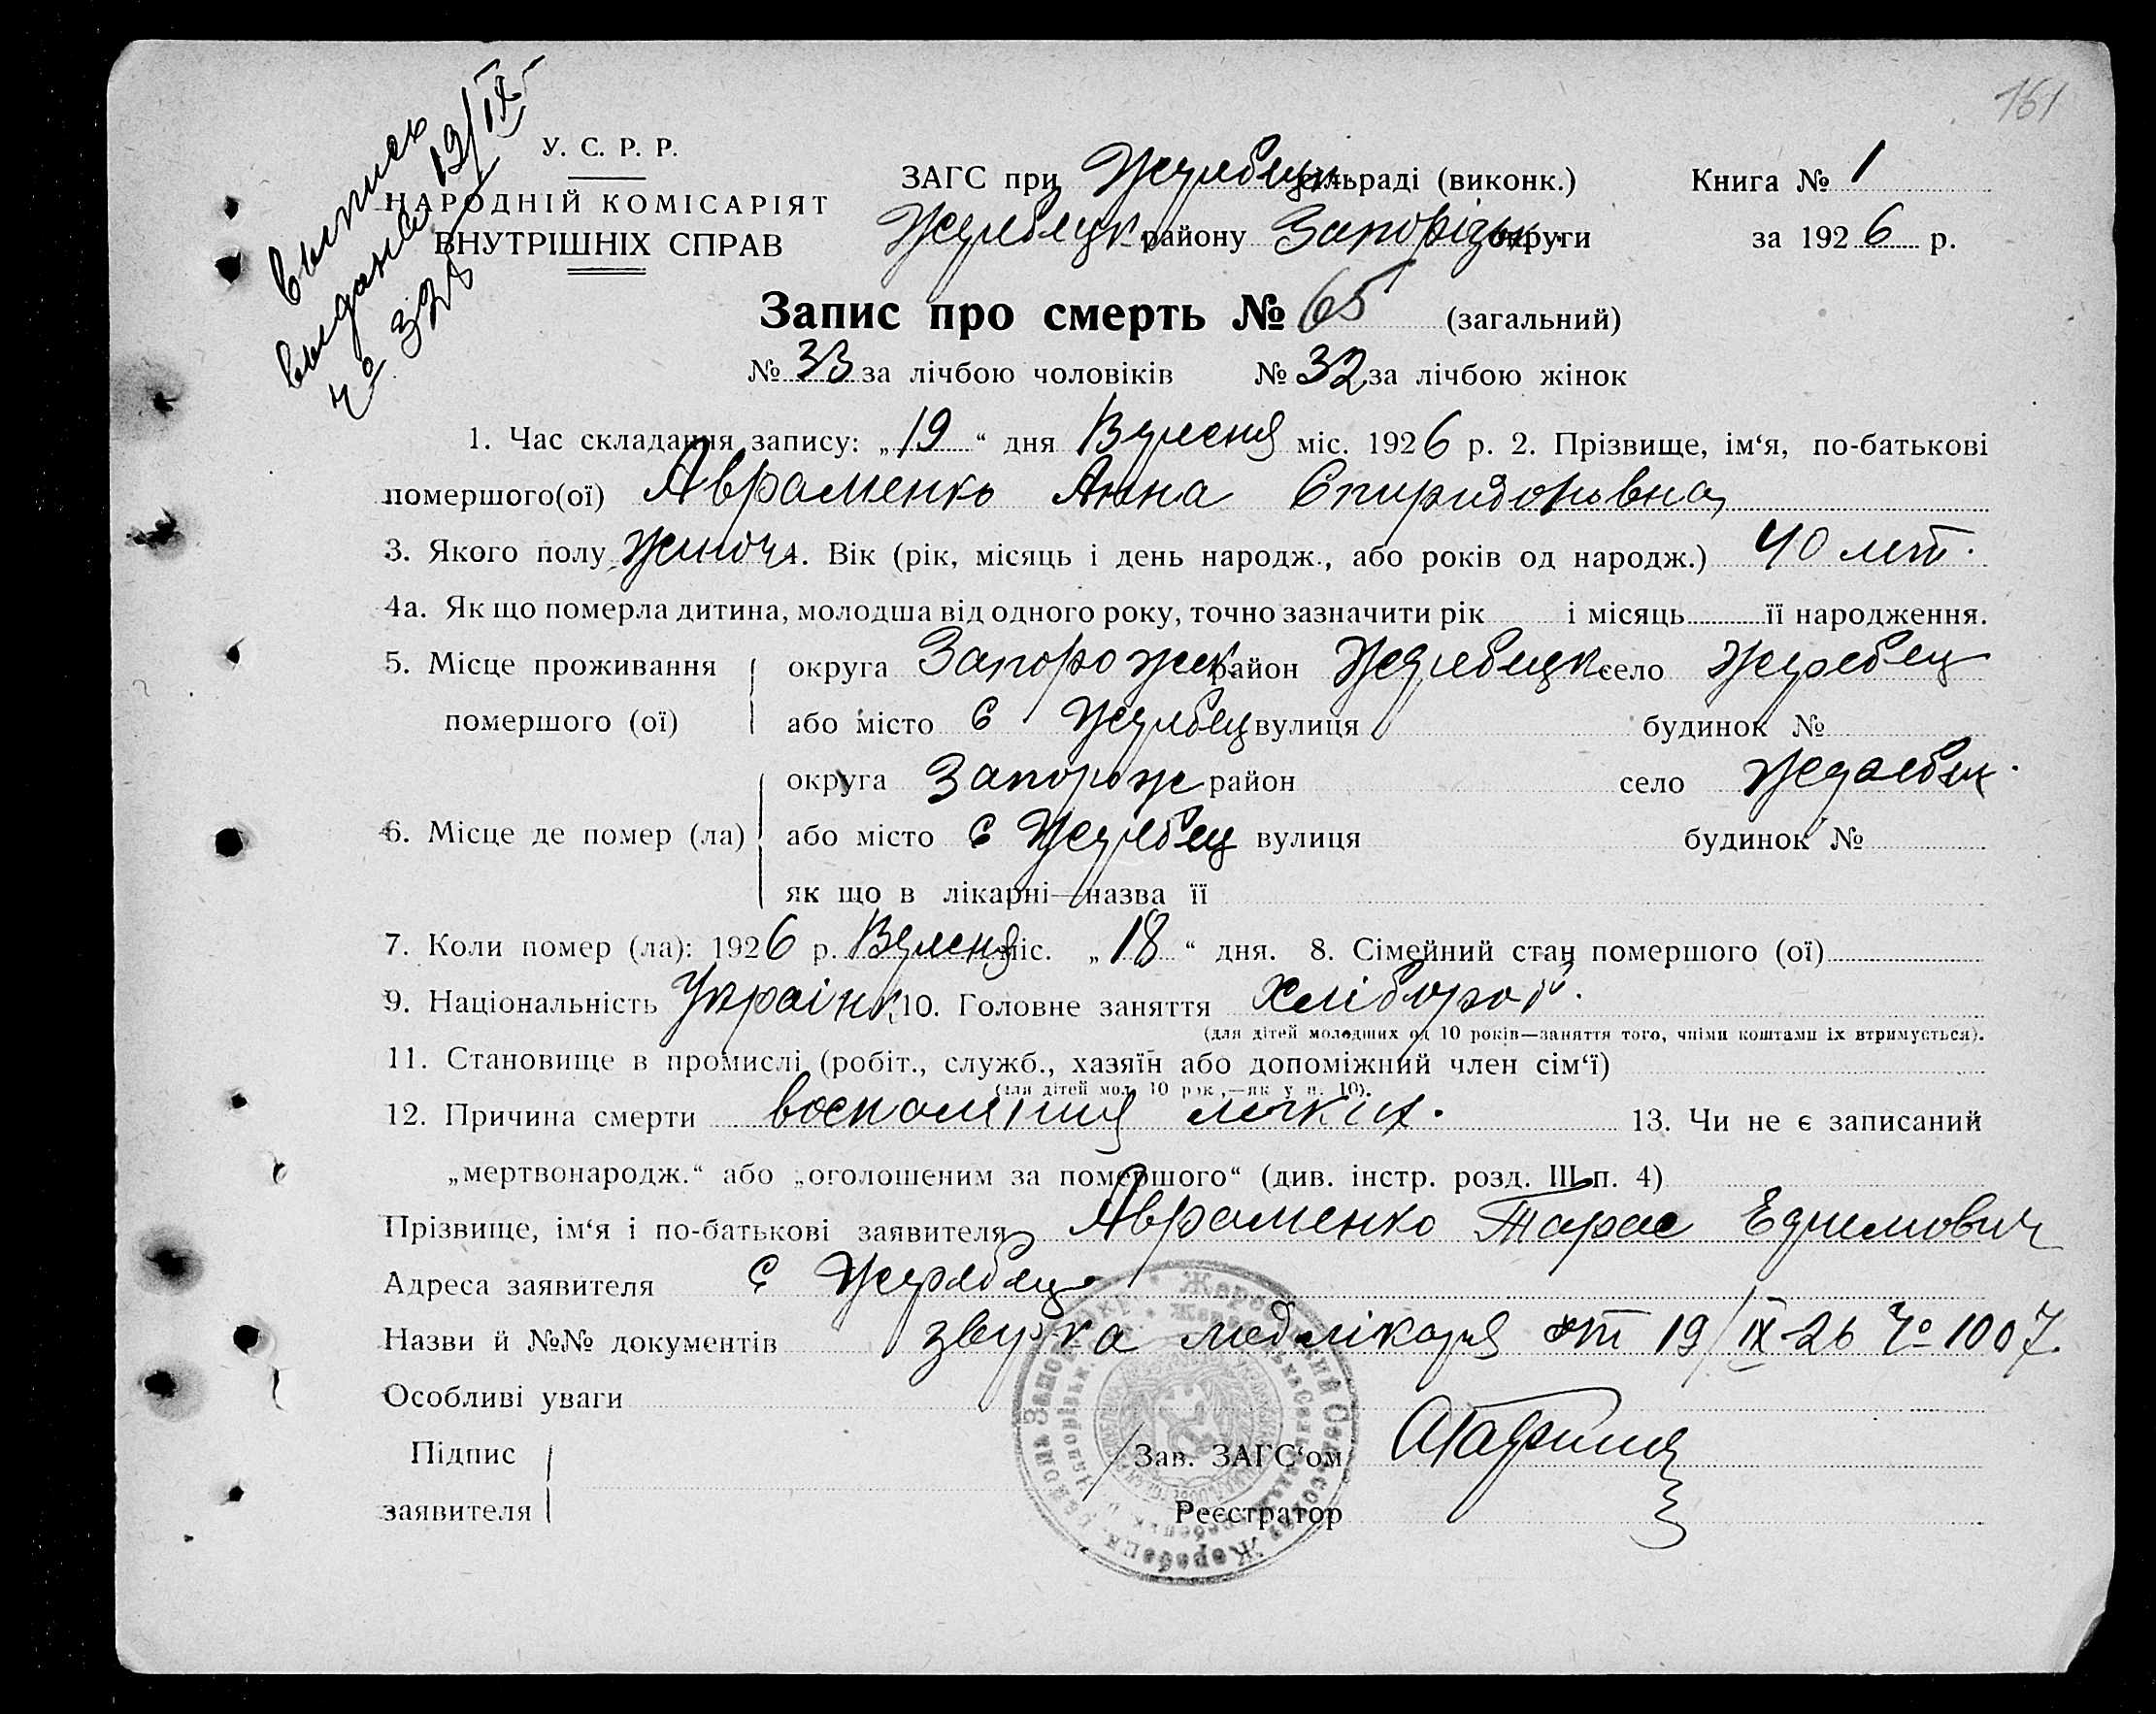 161
выпись
выдана 19/IX
№ 328
У. С. Р. Р.
НАРОДНІЙ КОМІСАРІЯТ
ВНУТРІШНІХ СПРАВ
ЗАГС при Жеребецк. сільраді (виконк.)
Жеребецк. району Запорізьк. округи
Книга № 1
за 1926 р.
Запис про смерть № 65 (загальний)
№ 33 за лічбою чоловіків № 32 за лічбою жінок
1. Час складання запису: „19“ дня Вересня міс. 1926 р. 2. Прізвище, ім‘я, по-батькові
помершого(ої) Авраменко Анна Спиридоновна
3. Якого полу Жиноч 4. Вік (рік, місяць і день народж., або років од народж.) 40 лет.
4а. Як що померла дитина, молодша від одного року, точно зазначити рік і місяць її народження.
5. Місце проживання помершого (ої)
округа Запорожск. район Жеребецк. село Жеребец
або місто с Жеребец вулиця будинок №
6. Місце де помер (ла)
округа Запорож район село Жеребец.
або місто с Жеребец вулиця будинок №
як що в лікарні—назва її
7. Коли помер (ла): 1926 р. Вересня міс. „18“ дня. 8. Сімейний стан помершого (ої)
9. Національність Україн. 10. Головне заняття Хлібороб.
(для дітей молодших од 10 років—заняття того, чиїми коштами їх втримується).
11. Становище в промислі (робіт., служб., хазяїн або допоміжний член сім‘ї)
(для дітей мол. 10 рок.,—як у п. 10).
12. Причина смерти воспаления легких. 13. Чи не є записаний
„мертвонародж.“ або „оголошеним за помершого“ (див. інстр. розд. III п. 4)
Прізвище, ім‘я і по-батькові заявителя Авраменко Тарас Ефимович
Адреса заявителя с Жеребец
Назви й №№ документів медлікаря от 19/IX-26 № 1007.
Особливі уваги
Підпис
заявителя
Зав. ЗАГС‘ом
Реєстратор